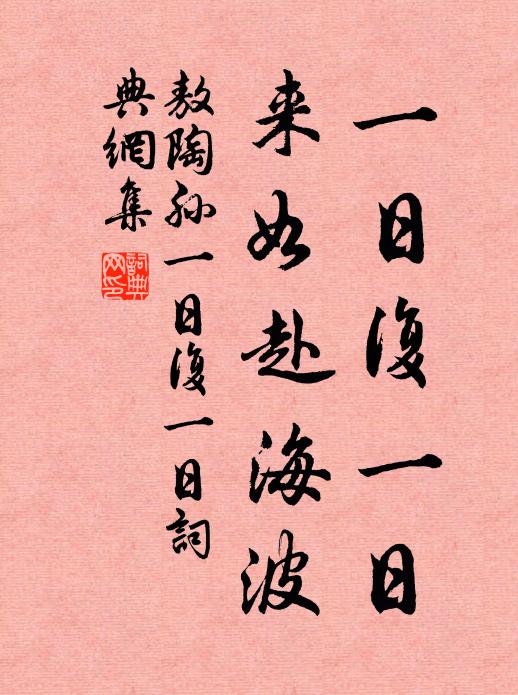 一日復一日
来如赴海波
敖陶孙一日復一日詞
典網集
詞典
网印